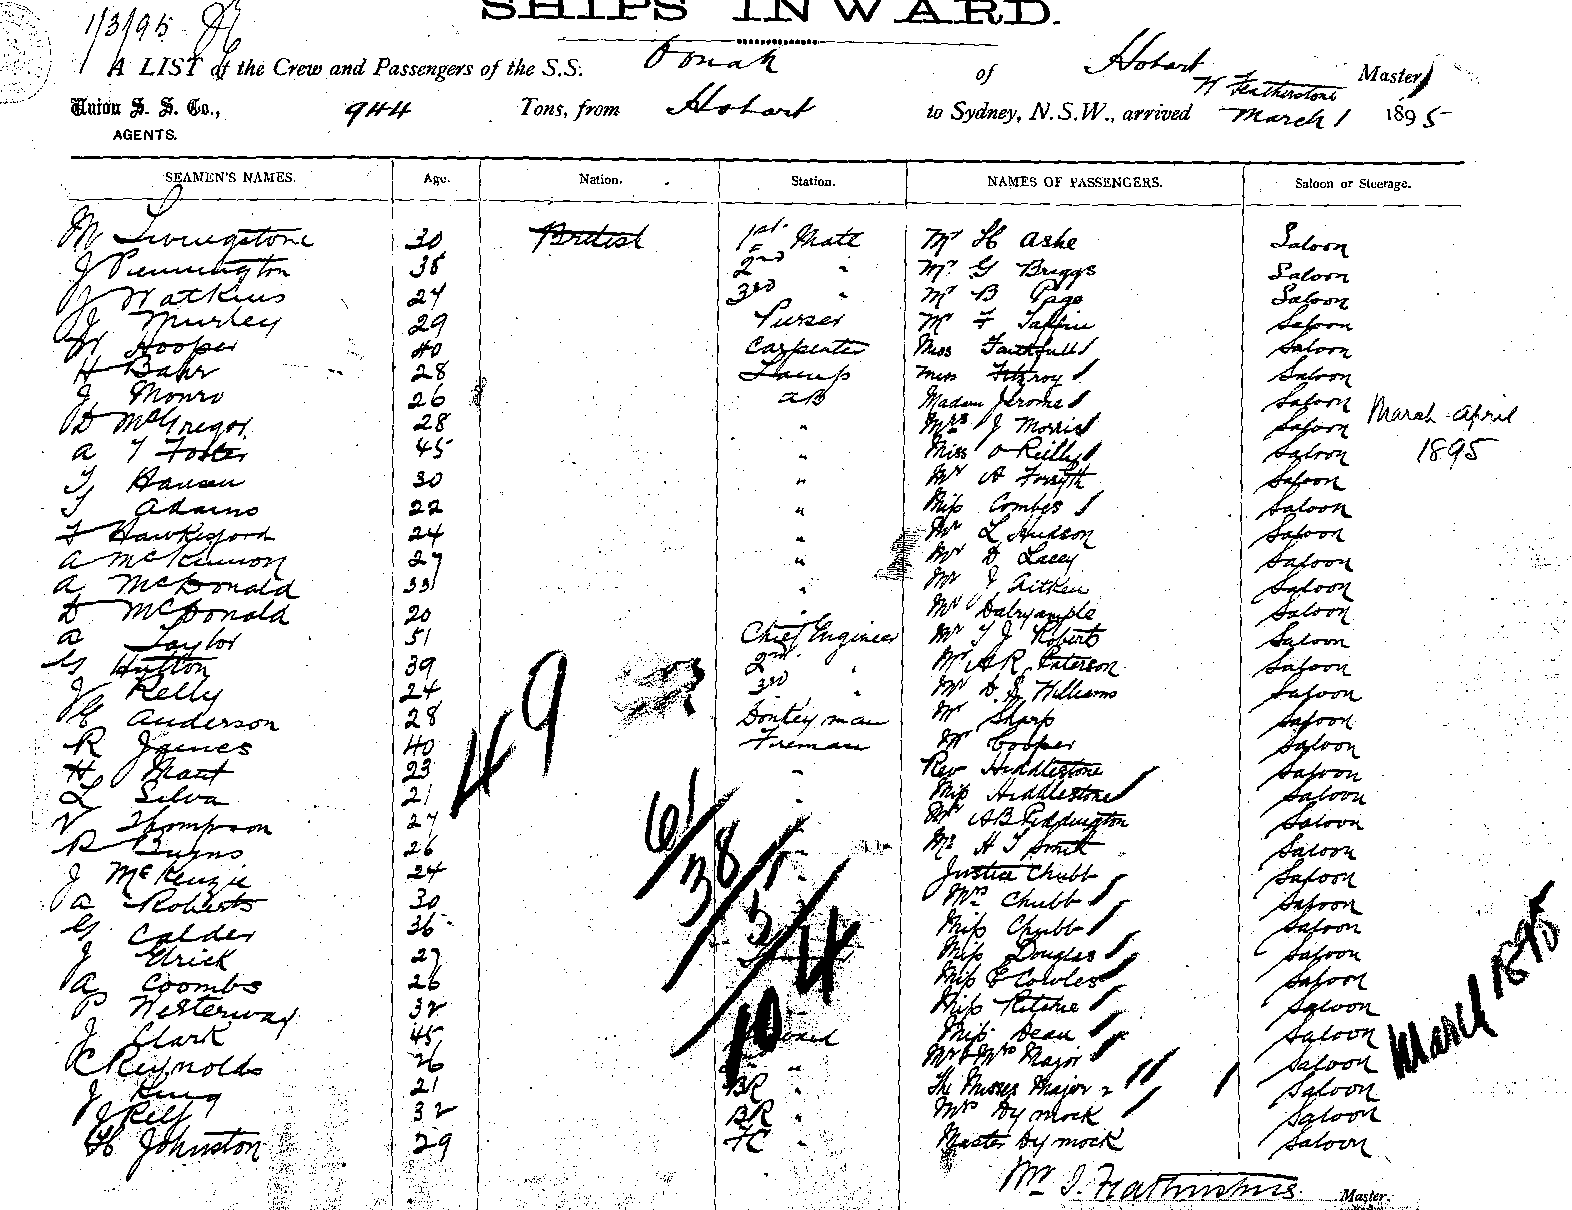 SHIPS INWARD.
1/3/95
A LIST of the Crew and Passengers of the S.S. Oonah of Hobart
W Featherstone Master
Union S. S. Co., 944 Tons, from Hobart to Sydney, N.S.W., arrived March 1 1895
AGENTS.
SEAMEN'S NAMES. Age. Nation. Station. NAMES OF PASSENGERS. Saloon or Steerage.
M Livingstone 30 British 1st Mate Mr H Ashe Saloon
J Pennington 35 2nd " Mr G Briggs Saloon
J Watkins 24 3rd " Mr B Page Saloon
J Murley 29 Purser Mr F Saloon
W Hooper 40 Carpenter Miss Faithfull Saloon
H Bahr 28 Lamps Miss Fitzroy Saloon
J Monro 26 AB Madam Jerome Saloon
D McGregor 28 " Mrs J Morris Saloon
March-April
A T Foster 45 " Miss O Reilly Saloon
1895
T Hansen 30 " Mr A Forsyth Saloon
T Adams 22 " Miss Combes Saloon
F Hawkesford 24 " Mr L Hudson Saloon
A McKinnon 27 " Mr D Lacey Saloon
A McDonald 33 " Mr J Aitken Saloon
D McDonald 20 " Mr Dalrymple Saloon
A Taylor 51 Chief Engineer Mr T J Roberts Saloon
G Hutton 39 2nd " Mr A R Paterson Saloon
J Kelly 24 3rd " Mr D. J. Williams Saloon
G Anderson 28 Donkeyman Mr Sharp Saloon
R James 40 Fireman Mr Cooper Saloon
H Mant 23 " Rev Hiddlestone Saloon
L Silva 21 " Miss Hiddlestone Saloon
49
V Thompson 27 Mr A B Piddington Saloon
R Burns 26 " Mr H T Smith Saloon
J McKenzie 24 " Justice Chubb Saloon
A Roberts 30 Mrs Chubb Saloon
G Calder 36 Miss Chubb Saloon
J Elrick 27 Miss Douglas Saloon
A Coombs 26 Miss E Cowles Saloon
P Westerway 32 Miss Ritchie Saloon
J Clark 45 Miss Dean Saloon
C Reynolds 26 " Mr & Mrs Major Saloon
61/38/5/4
10
March 1895
J King 21 BR " The Misses Major 2 Saloon
J Relf 32 BR " Mrs Dymock Saloon
H Johnston 29 FC " Master Dymock Saloon
Master.